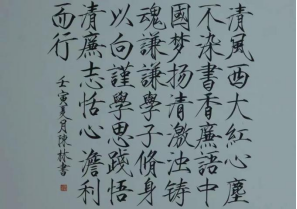 清風西大紅心塵
不染書香廉語中
國梦扬清激浊铸
魂謙謙學子脩身
以向謹學思踐悟
清廉志恬心澹利
而行
壬寅夏月陳林書